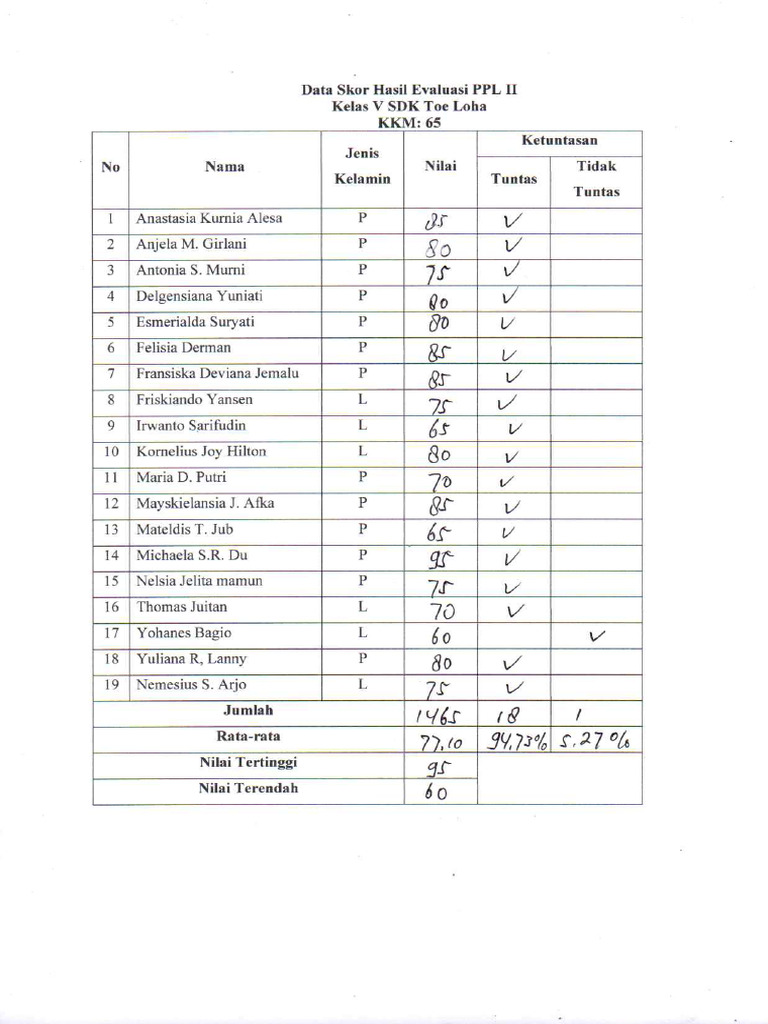 Data Skor Hasil Evaluasi PPL II
Kelas V SDK Toe Loha
KKM: 65
No Nama Jenis Kelamin Nilai Ketuntasan
Tuntas Tidak Tuntas
1 Anastasia Kurnia Alesa P 85 ✓
2 Anjela M. Girlani P 80 ✓
3 Antonia S. Murni P 75 ✓
4 Delgensiana Yuniati P 80 ✓
5 Esmerialda Suryati P 80 ✓
6 Felisia Derman P 85 ✓
7 Fransiska Deviana Jemalu P 85 ✓
8 Friskiando Yansen L 75 ✓
9 Irwanto Sarifudin L 65 ✓
10 Kornelius Joy Hilton L 80 ✓
11 Maria D. Putri P 70 ✓
12 Mayskielansia J. Afka P 85 ✓
13 Mateldis T. Jub P 65 ✓
14 Michaela S.R. Du P 95 ✓
15 Nelsia Jelita mamun P 75 ✓
16 Thomas Juitan L 70 ✓
17 Yohanes Bagio L 60 ✓
18 Yuliana R, Lanny P 80 ✓
19 Nemesius S. Arjo L 75 ✓
Jumlah 1465 18 1
Rata-rata 77,10 94,73% 5,27%
Nilai Tertinggi 95
Nilai Terendah 60